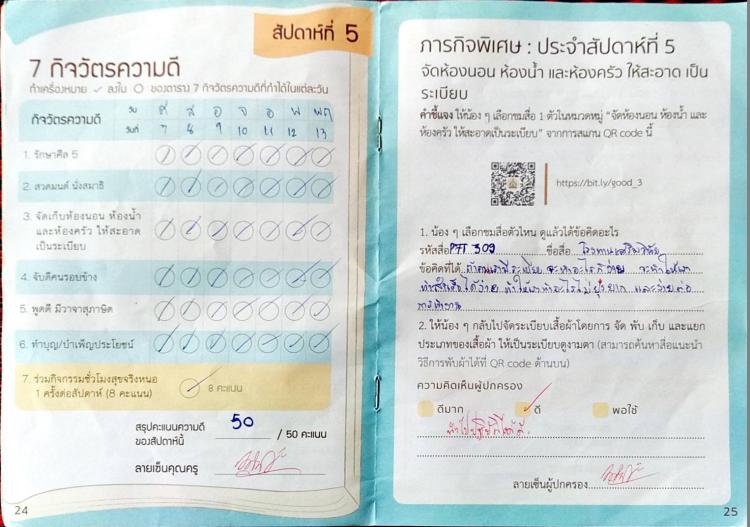 สัปดาห์ที่ 5
7 กิจวัตรความดี
ทำเครื่องหมาย ✓ ลงใน ○ ของตาราง 7 กิจวัตรความดีที่ทำได้ในแต่ละวัน
กิจวัตรความดี
วัน ศ ส อ จ อ พ พฤ
วันที่ 7 8 9 10 11 12 13
1. รักษาศีล 5
2. สวดมนต์ นั่งสมาธิ
3. จัดเก็บห้องนอน ห้องน้ำ
และห้องครัว ให้สะอาด
เป็นระเบียบ
4. จับดีคนรอบข้าง
5. พูดดี มีวาจาสุภาษิต
6. ทำบุญ/บำเพ็ญประโยชน์
7. ร่วมกิจกรรมชั่วโมงสุขจริงหนอ
1 ครั้งต่อสัปดาห์ (8 คะแนน)
8 คะแนน
สรุปคะแนนความดี
ของสัปดาห์นี้ 50 / 50 คะแนน
ลายเซ็นคุณครู
24
ภารกิจพิเศษ : ประจำสัปดาห์ที่ 5
จัดห้องนอน ห้องน้ำ และห้องครัว ให้สะอาด เป็น
ระเบียบ
คำชี้แจง ให้น้อง ๆ เลือกชมสื่อ 1 ตัวในหมวดหมู่ "จัดห้องนอน ห้องน้ำ และ
ห้องครัว ให้สะอาดเป็นระเบียบ" จากการสแกน QR code นี้
https://bit.ly/good_3
1. น้อง ๆ เลือกชมสื่อตัวไหน ดูแล้วได้ข้อคิดอะไร
รหัสสื่อ PTT 309 ชื่อสื่อ
ข้อคิดที่ได้
2. ให้น้อง ๆ กลับไปจัดระเบียบเสื้อผ้าโดยการ จัด พับ เก็บ และแยก
ประเภทของเสื้อผ้า ให้เป็นระเบียบดูงามตา (สามารถค้นหาสื่อแนะนำ
วิธีการพับผ้าได้ที่ QR code ด้านบน)
ความคิดเห็นผู้ปกครอง
ดีมาก ดี พอใช้
ลายเซ็นผู้ปกครอง
25